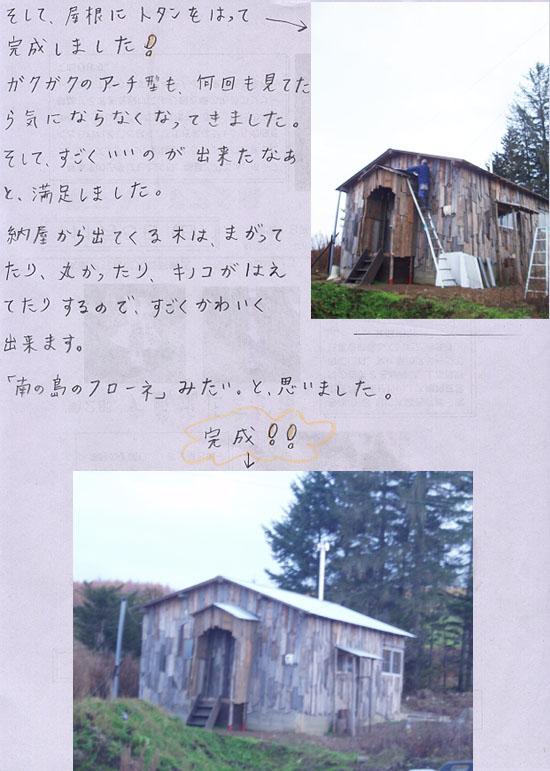 そして、屋根にトタンをはって
完成しました!
ガクガクのアーチ型も、何回も見てた
ら気にならなくなってきました。
そして、すごくいいのが出来たなぁ
と、満足しました。
納屋から出てくる木は、まがって
たり、丸かったり、キノコがはえ
てたりするので、すごくかわいく
出来ます。
「南の島のフローネ」みたい。と、思いました。
完成!!